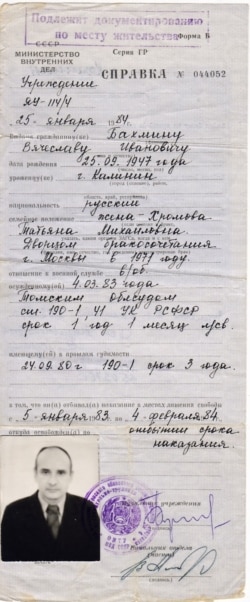 Подлежит документированию
по месту жительства
Форма Б
СССР
Серия ГР
МИНИСТЕРСТВО
ВНУТРЕННИХ
ДЕЛ
СПРАВКА № 044052
Учреждение
ЯУ-114/4
25 января 1984.
Выдана гражданину(ке) Бахмину
Вячеславу Ивановичу
дата рождения 25.09.1947 года
уроженцу(ке) г. Калинин
национальность русский
семейное положение жена-Хромова
Татьяна Михайловна
Дворцом бракосочетания
г. Москвы в 1971 году.
отношение к военной службе в/об.
осужденному(ой) 4.03.83 года
Томским облсудом
ст. 190-1 ч1 УК РСФСР
срок 1 год 1 месяц л/св.
имеющему(ей) в прошлом судимости
24.09.80г 190-1 срок 3 года.
в том, что он(а) отбывал(а) наказание в местах лишения свободы
с 5-января 83 по 4-февраля 84.
откуда освобожден(а) по отбытии срока
наказания.
Начальник учреждения
Начальник отдела
(части)